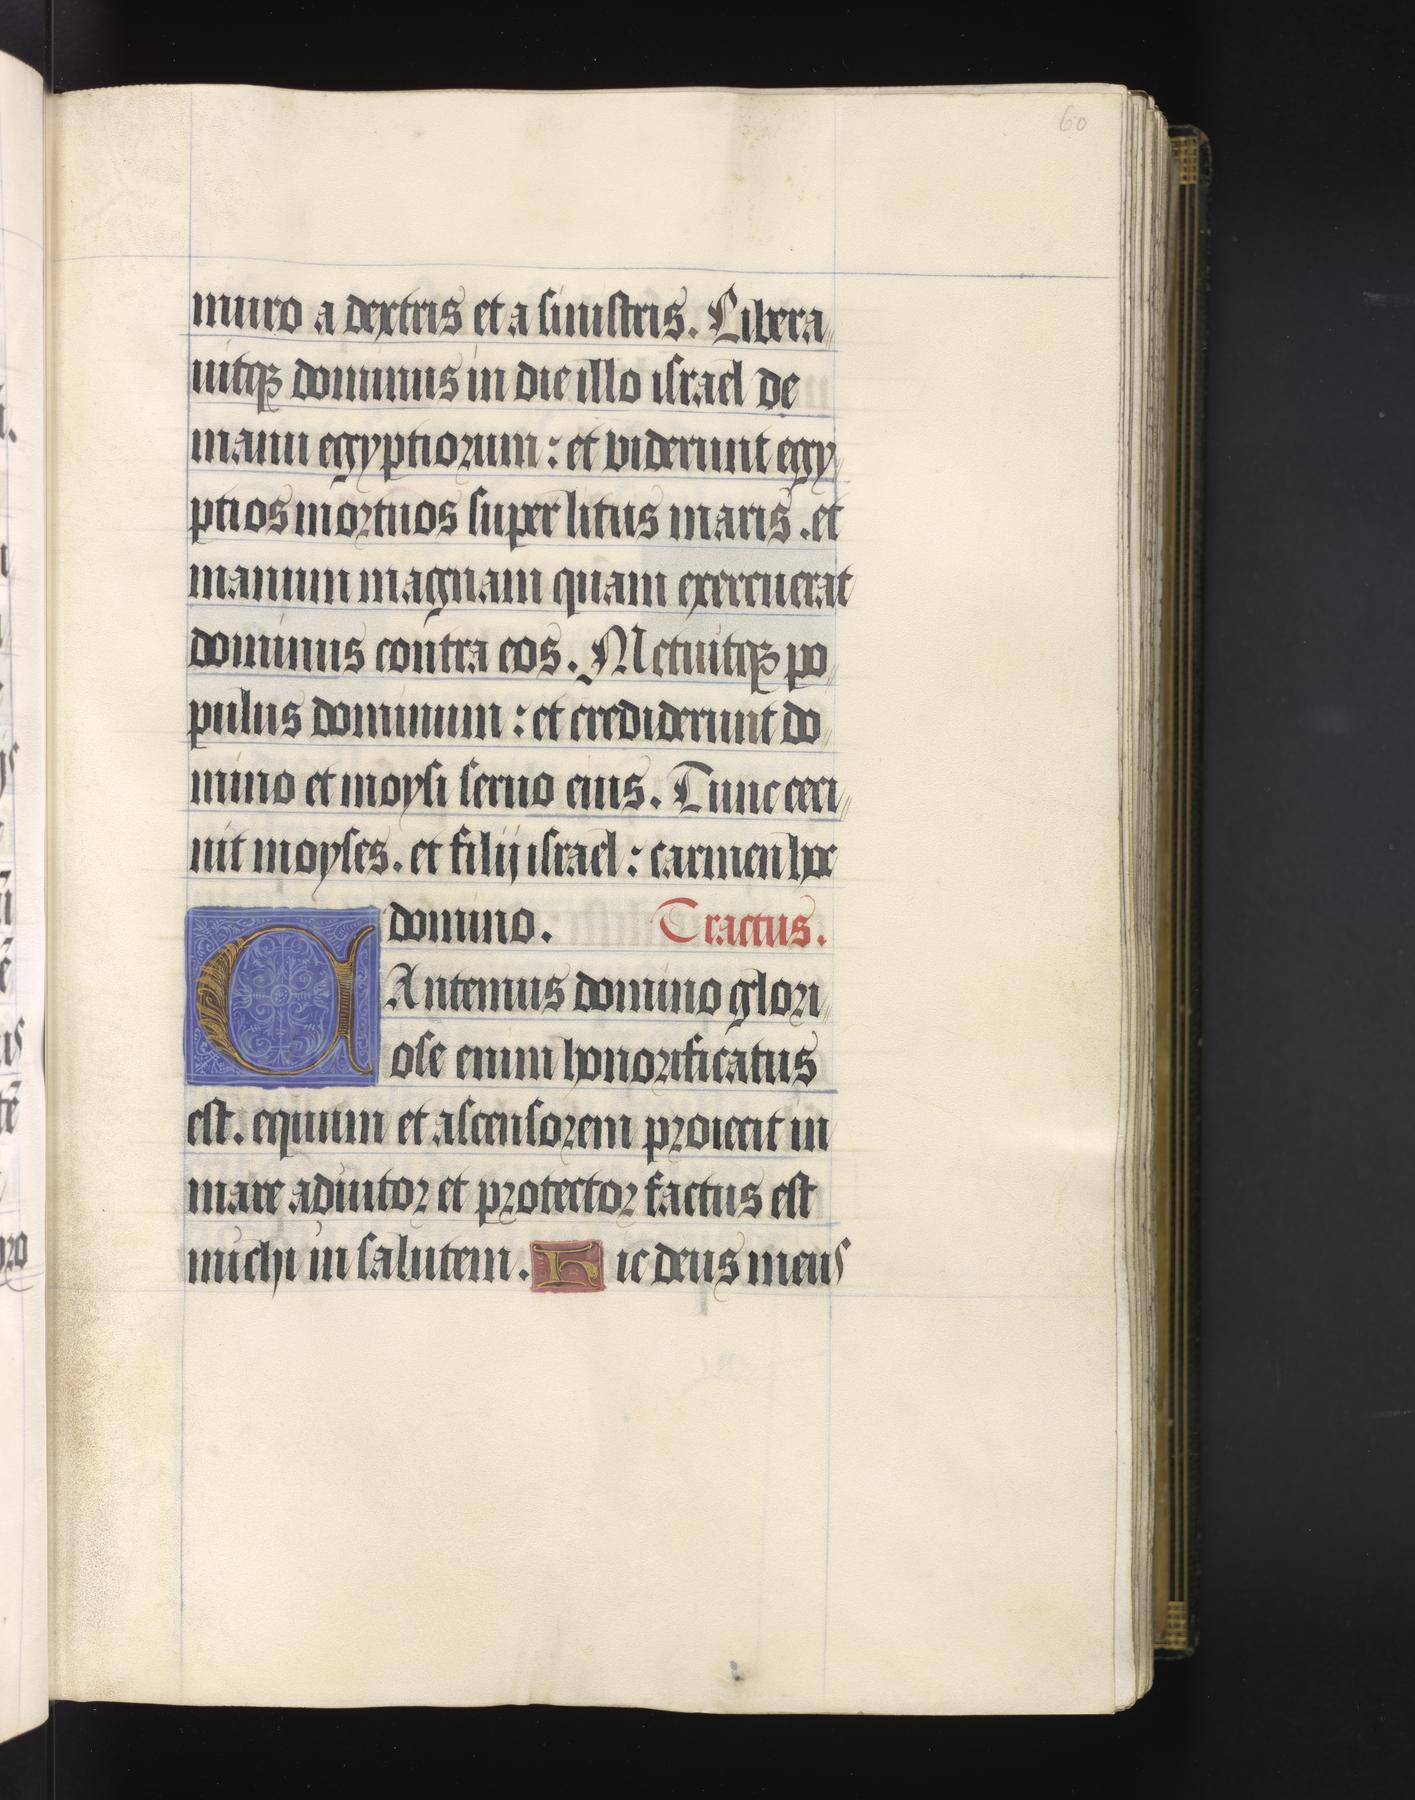 60
muro a dextris et a sinistris. Libera
uitqȝ dominus in die illo israel de
manu egyptiorum : et viderunt egy
ptios mortuos super litus maris . et
manum magnam quam exercuerat
dominus contra eos. Metuitqȝ po
pulus dominum : et crediderunt do
mino et moysi seruo eius. Tunc ceci
nit moyses. et filij israel : carmen hoc
domino. Tractus.
CAntemus domino glori
ose enim honorificatus
est. equum et ascensorem proiecit in
mare adiutor et protector factus est
michi in salutem. Hic deus meus